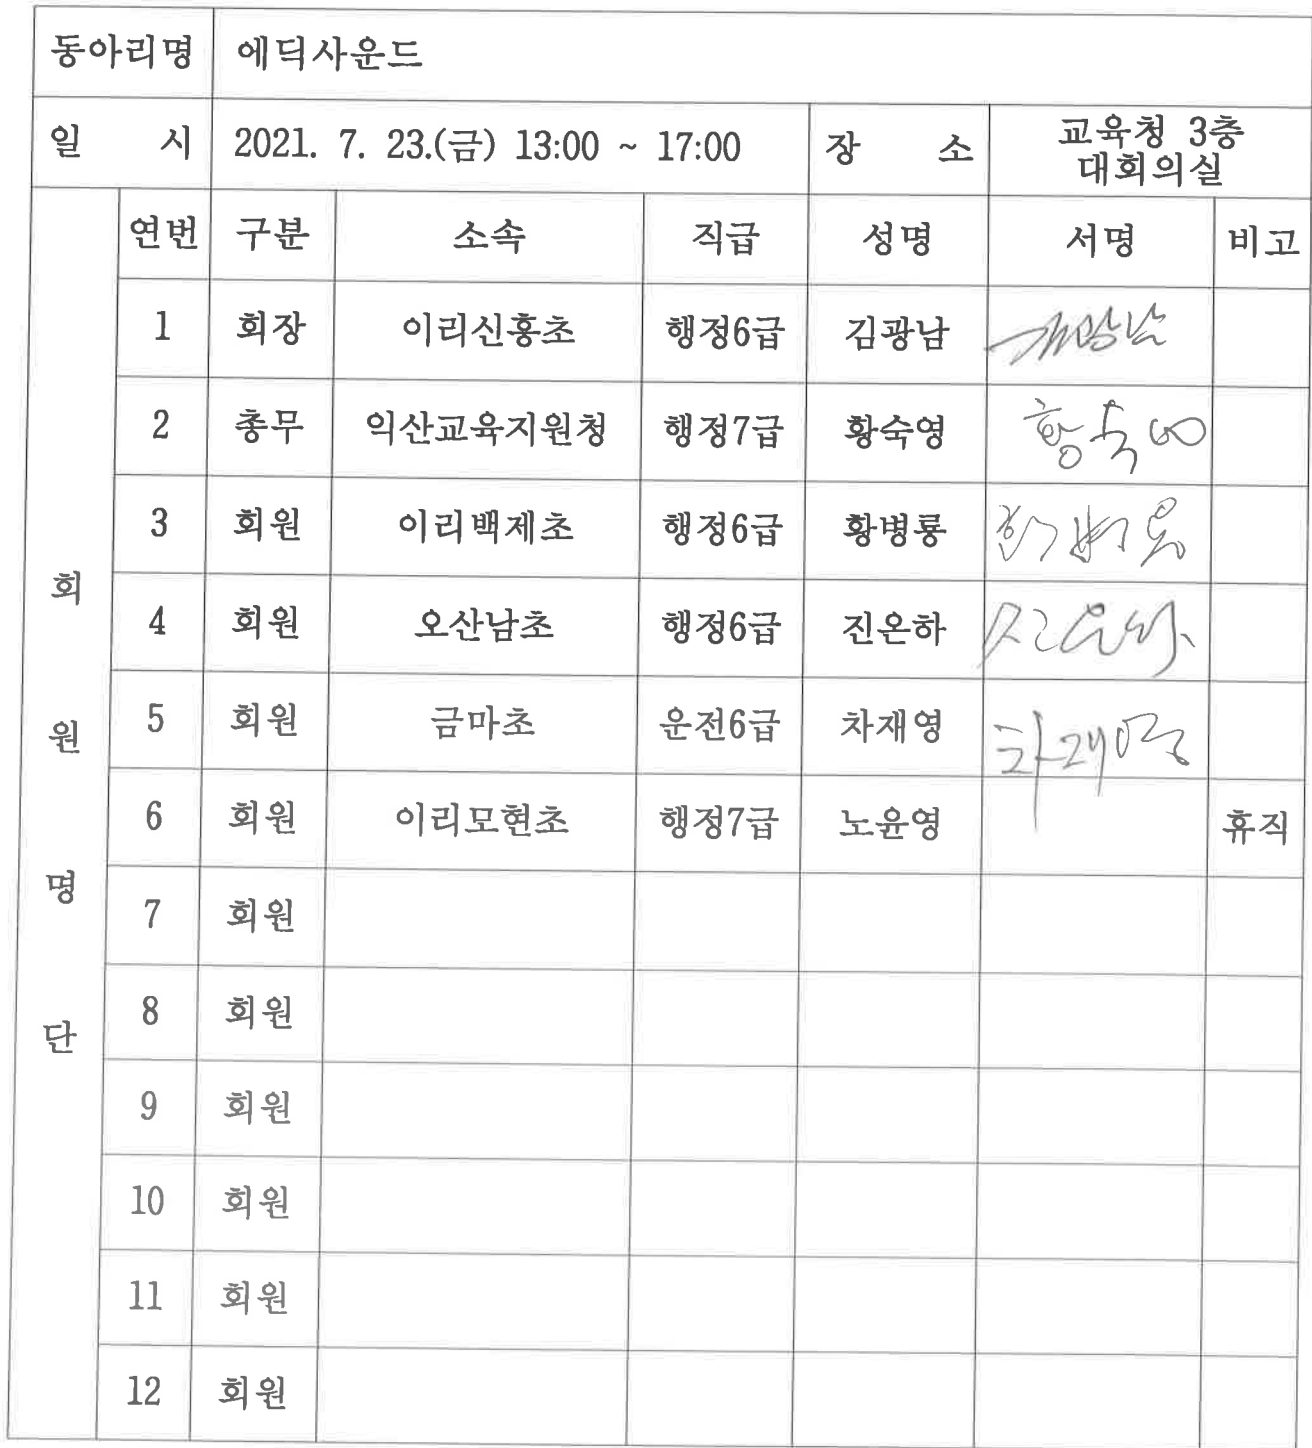 동아리명 에딕사운드
일 시 2021. 7. 23.(금) 13:00 ~ 17:00 장 소 교육청 3층
대회의실
회원명단
연번 구분 소속 직급 성명 서명 비고
1 회장 이리신흥초 행정6급 김광남
2 총무 익산교육지원청 행정7급 황숙영 황숙영
3 회원 이리백제초 행정6급 황병룡
4 회원 오산남초 행정6급 진온하
5 회원 금마초 운전6급 차재영 차재영
6 회원 이리모현초 행정7급 노윤영 휴직
7 회원
8 회원
9 회원
10 회원
11 회원
12 회원